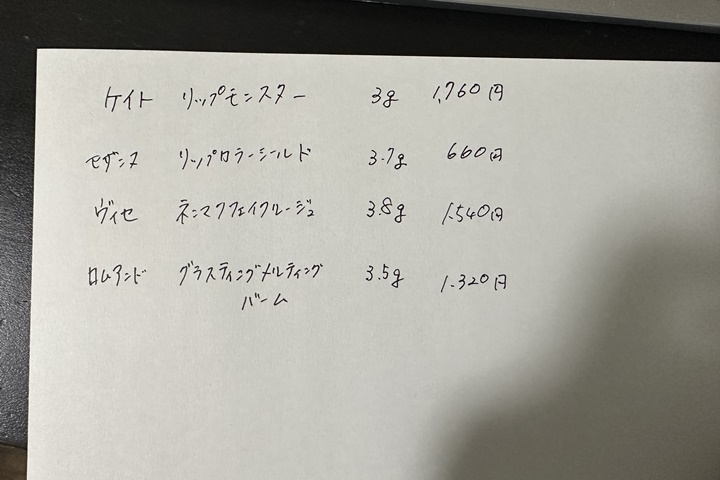 ケイト リップモンスター 3g 1,760円
セザンヌ リップカラーシールド 3.7g 660円
ヴィセ ネンマクフェイクルージュ 3.8g 1.540円
ロムアンド グラスティングメルティング 3.5g 1.320円
バーム